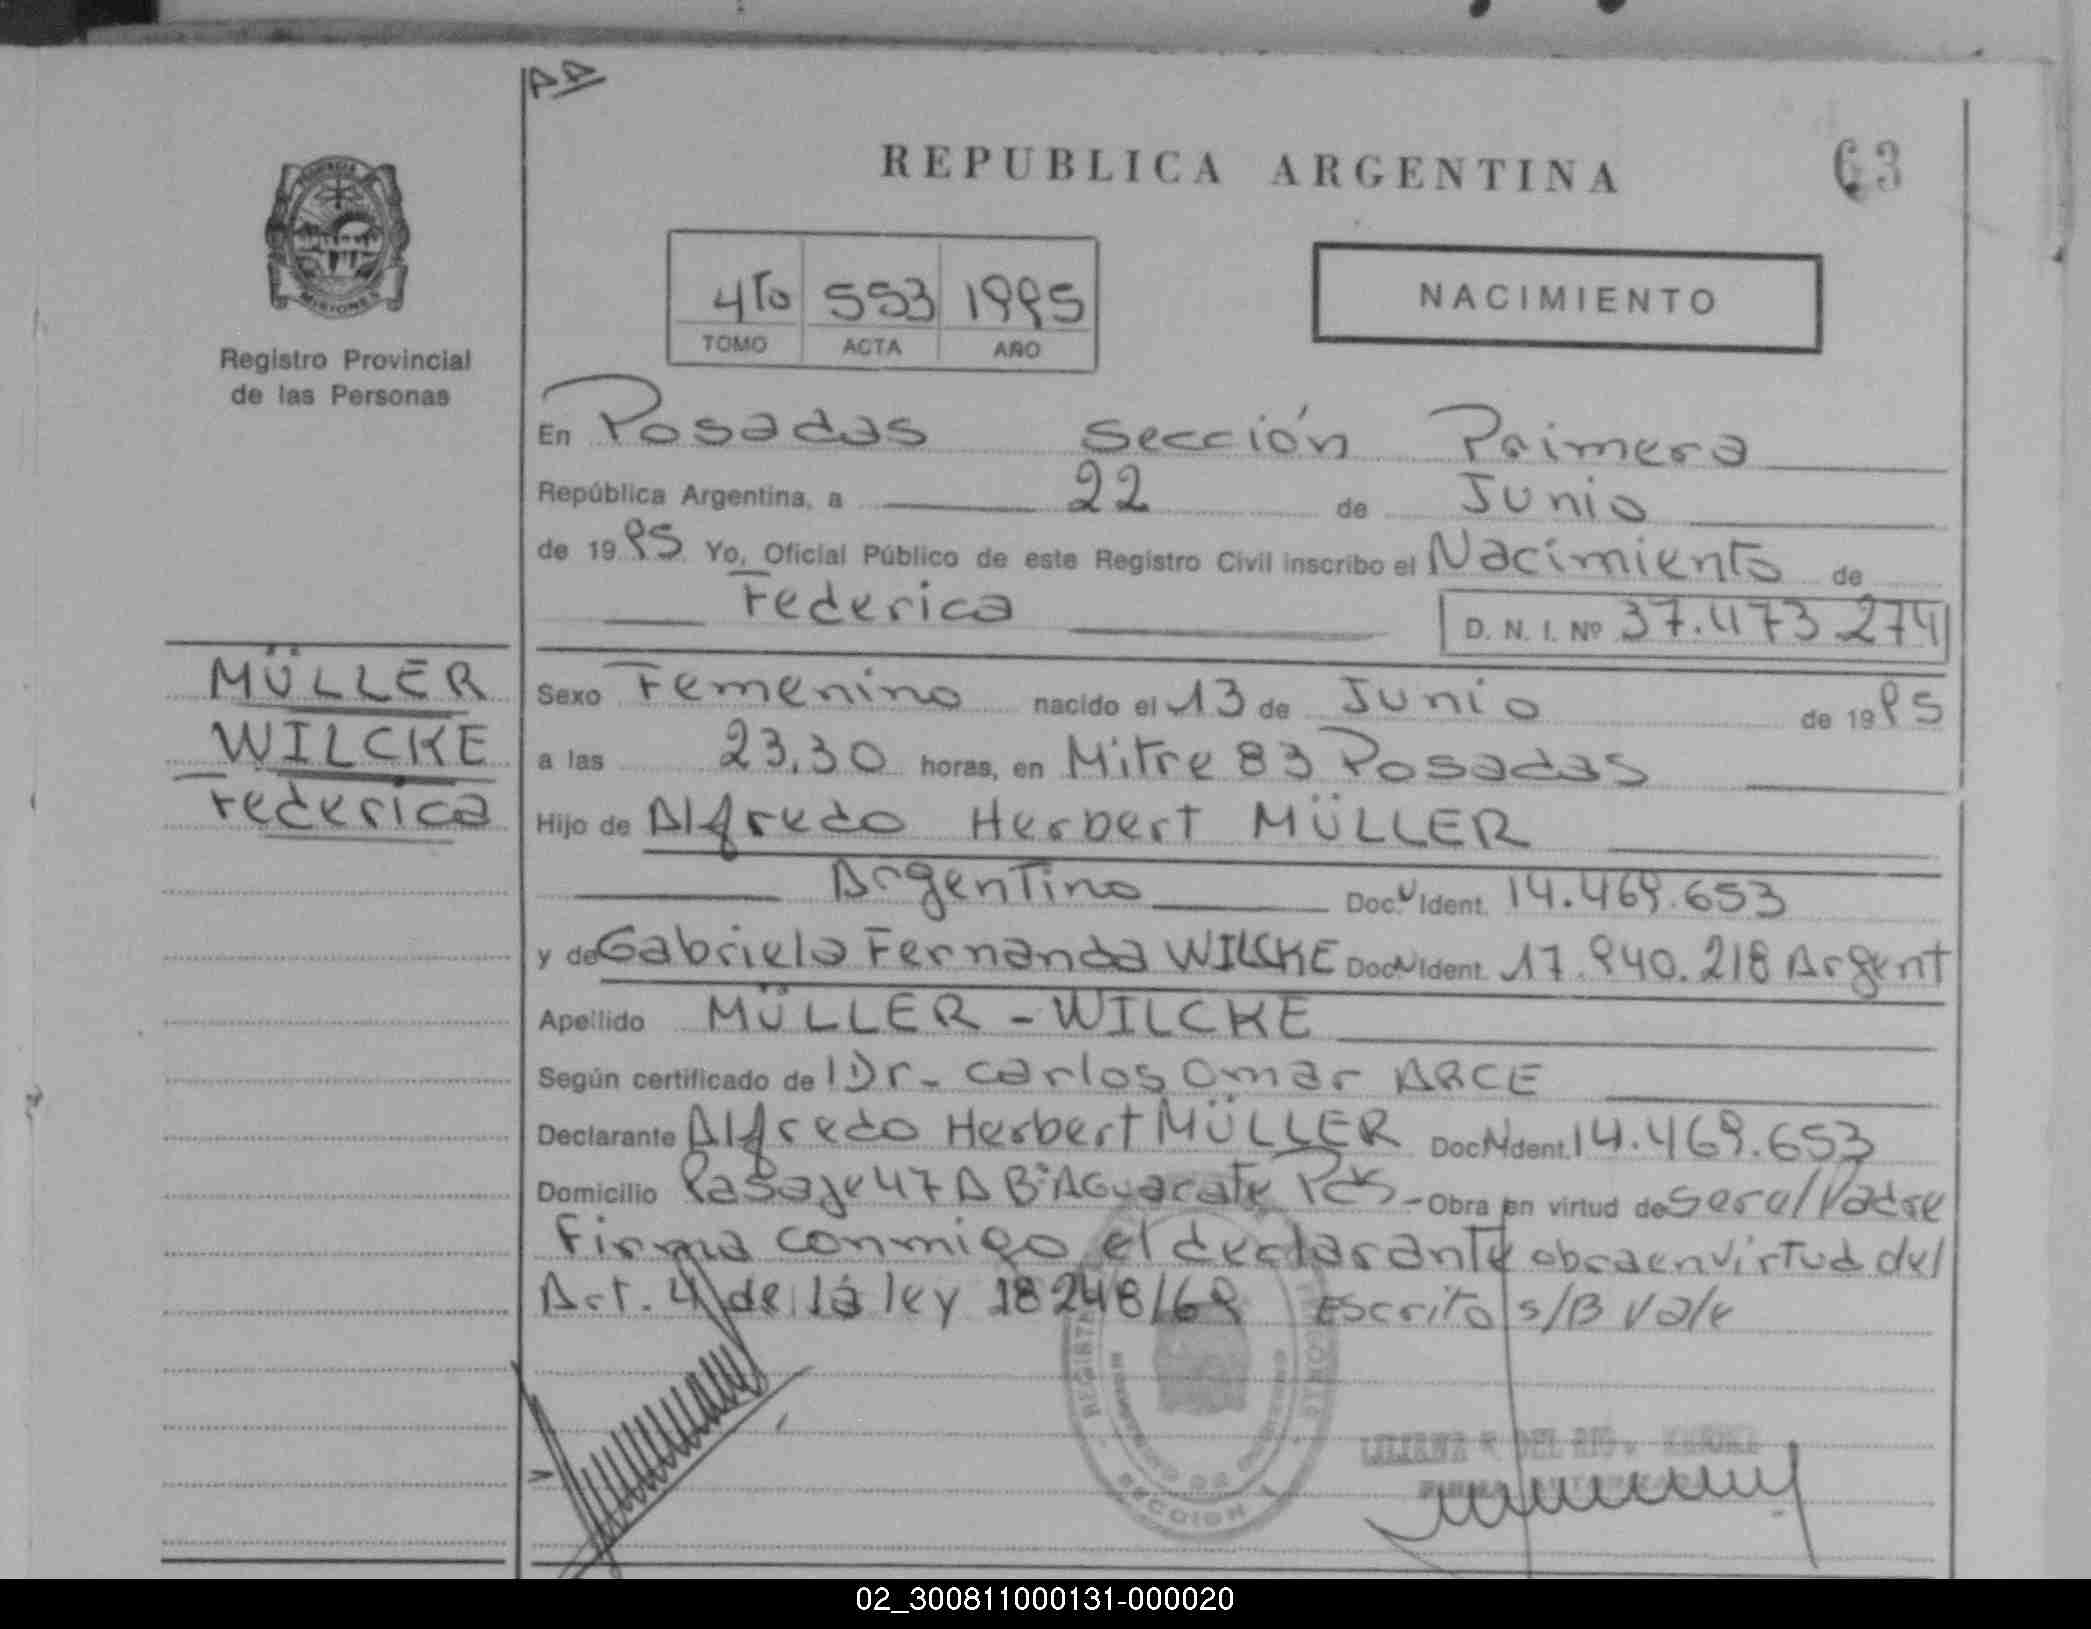 REPUBLICA ARGENTINA
63
4to 553 1995
TOMO ACTA AÑO
NACIMIENTO
MISIONES
Registro Provincial
de las Personas
En Posadas Sección Primera
República Argentina, a 22 de Junio
de 1995 Yo, Oficial Público de este Registro Civil inscribo el Nacimiento de
Federica D. N. I. Nº 37.473.274
MÜLLER
WILCKE
Federica
Sexo Femenino nacido el 13 de Junio de 1995
a las 23,30 horas, en Mitre 83 Posadas
Hijo de Alfredo Herbert MÜLLER
Argentino Doc. Ident. 14.469.653
y de Gabriela Fernanda WILCKE Doc. Ident. 17.940.218 Argent
Apellido MÜLLER - WILCKE
Según certificado de Dr. Carlos Omar ARCE
Declarante Alfredo Herbert MÜLLER Doc. Ident. 14.469.653
Domicilio Pasaje 47 A Bº Aguacate Pdas - Obra en virtud de Ser el Padre
Firma conmigo el declarante obra en virtud del
Art. 4 de la ley 18248/69 Escrito s/B Vale
SECCION 1
LILIANA DEL RIO
02_300811000131-000020